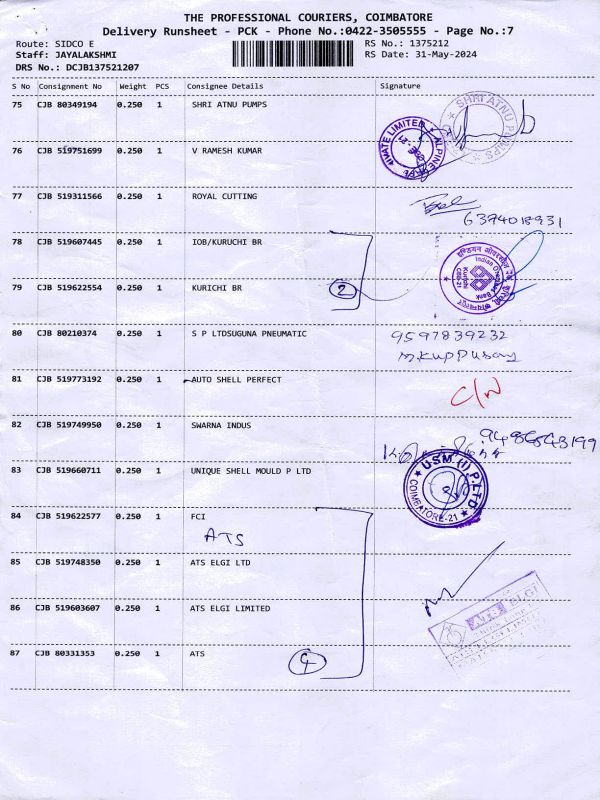 THE PROFESSIONAL COURIERS, COIMBATORE
Delivery Runsheet - PCK - Phone No.:0422-3505555 - Page No.:7
Route: SIDCO E
RS No.: 1375212
Staff: JAYALAKSHMI
RS Date: 31-May-2024
DRS No.: DCJB137521207
S No Consignment No Weight PCS Consignee Details Signature
75 CJB 80349194 0.250 1 SHRI ATNU PUMPS
SHRI ATNU PUMPS
76 CJB 519751699 0.250 1 V RAMESH KUMAR
77 CJB 519311566 0.250 1 ROYAL CUTTING
6374018931
78 CJB 519607445 0.250 1 IOB/KURUCHI BR
Indian Overseas Bank
79 CJB 519622554 0.250 1 KURICHI BR
2
80 CJB 80210374 0.250 1 S P LTDSUGUNA PNEUMATIC 9597839232
M.Kuppusamy
81 CJB 519773192 0.250 1 AUTO SHELL PERFECT
C/N
82 CJB 519749950 0.250 1 SWARNA INDUS
83 CJB 519660711 0.250 1 UNIQUE SHELL MOULD P LTD
USM (I) P. LTD
COIMBATORE-21
84 CJB 519622577 0.250 1 FCI
ATS
85 CJB 519748350 0.250 1 ATS ELGI LTD
86 CJB 519603607 0.250 1 ATS ELGI LIMITED
ATS ELGI
87 CJB 80331353 0.250 1 ATS
4